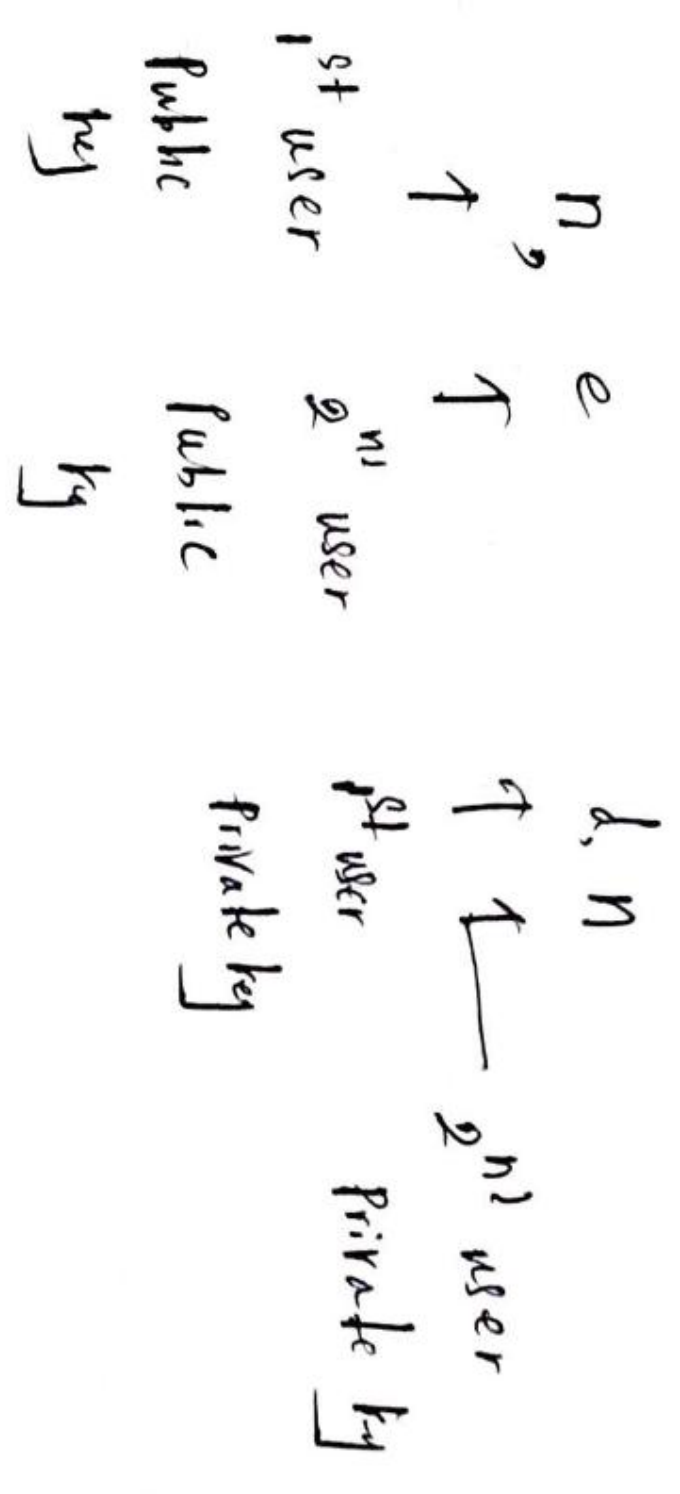 n, e
↑ ↑
1st user
Public
key
2nd user
Public
key
d, n
↑ ↑
1st user
Private key
2nd user
Private key